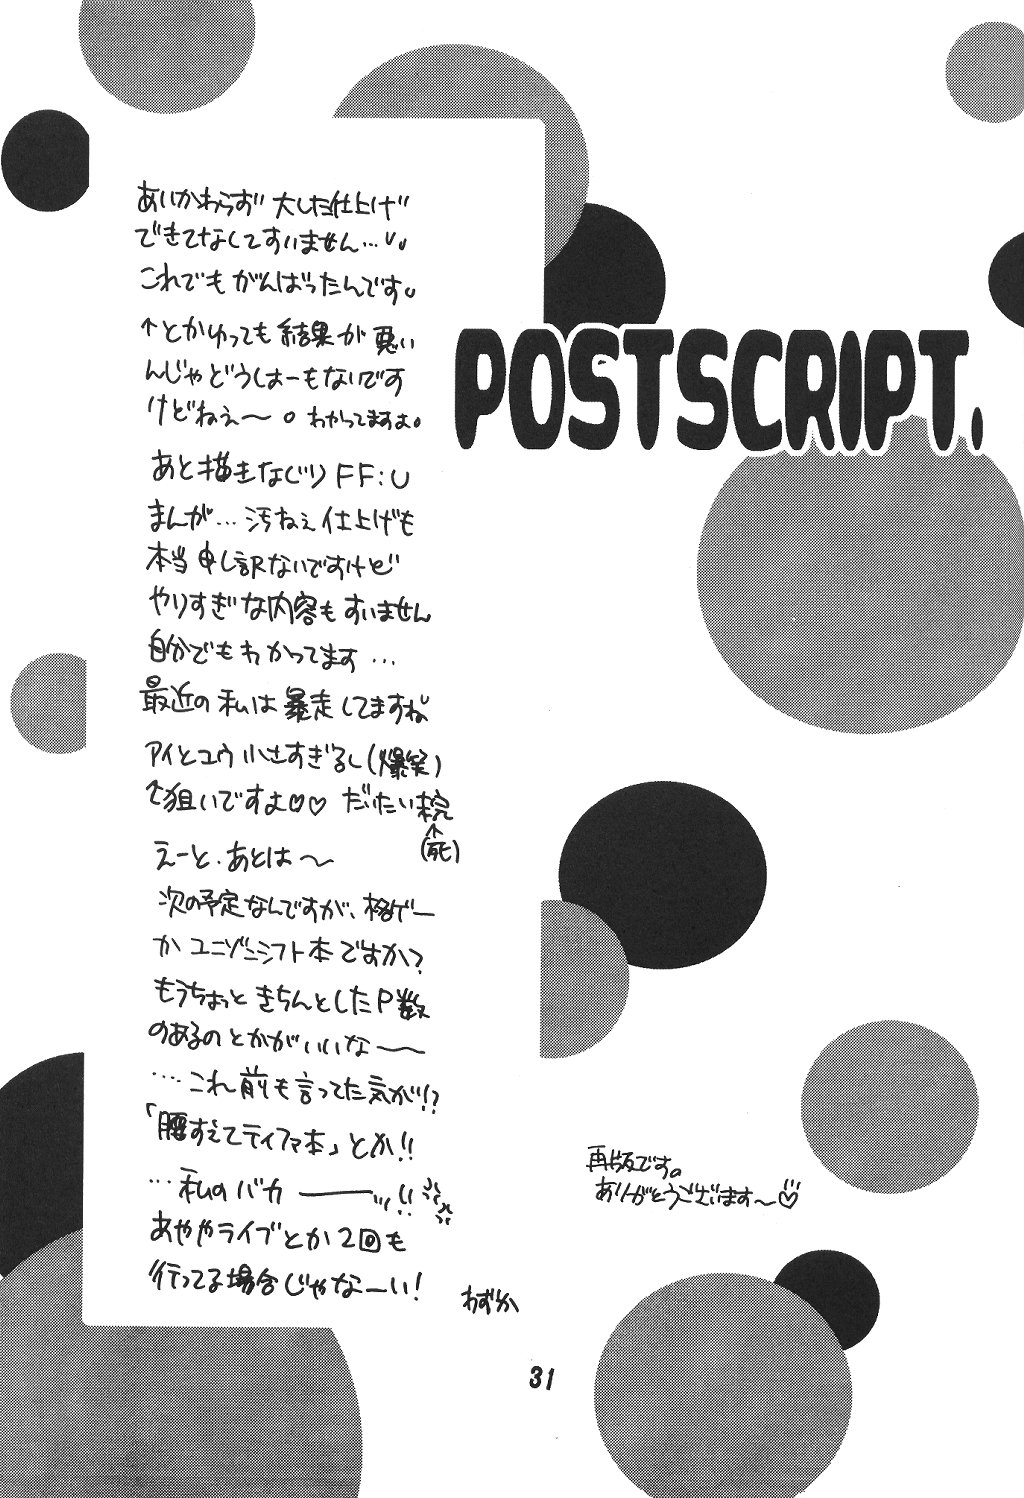 POSTSCRIPT.
あいかわらず 大した仕上げ
できてなしてすいません…
これでも がんばったんです。
↑とかゆっても結果が悪い
んじゃどうしよーもないです
けどねぇ〜。わかってますよ。
あと描きなぐりFF:U
まんが…汚ねぇ仕上げも
本当申し訳ないですけど
やりすぎな内容もすいません
自分でもわかってます…
最近の私は暴走してますね
アイとユウ小さすぎるし(爆笑)
↑狙いですよ♡♡ だいたい
↑
(死)
えーと、あとは〜
次の予定なんですが、格ゲー
かユニゾンシフト本ですか?
もうちょっときちんとしたP数
のあるのとかがいいな〜
…これ前も言ってた気が!?
「腰すえてティファ本」とか!!
…私のバカ———!!
あややライブとか2回も
行ってる場合じゃなーい!
わずか
再版です。
ありがとうございます〜♡
31